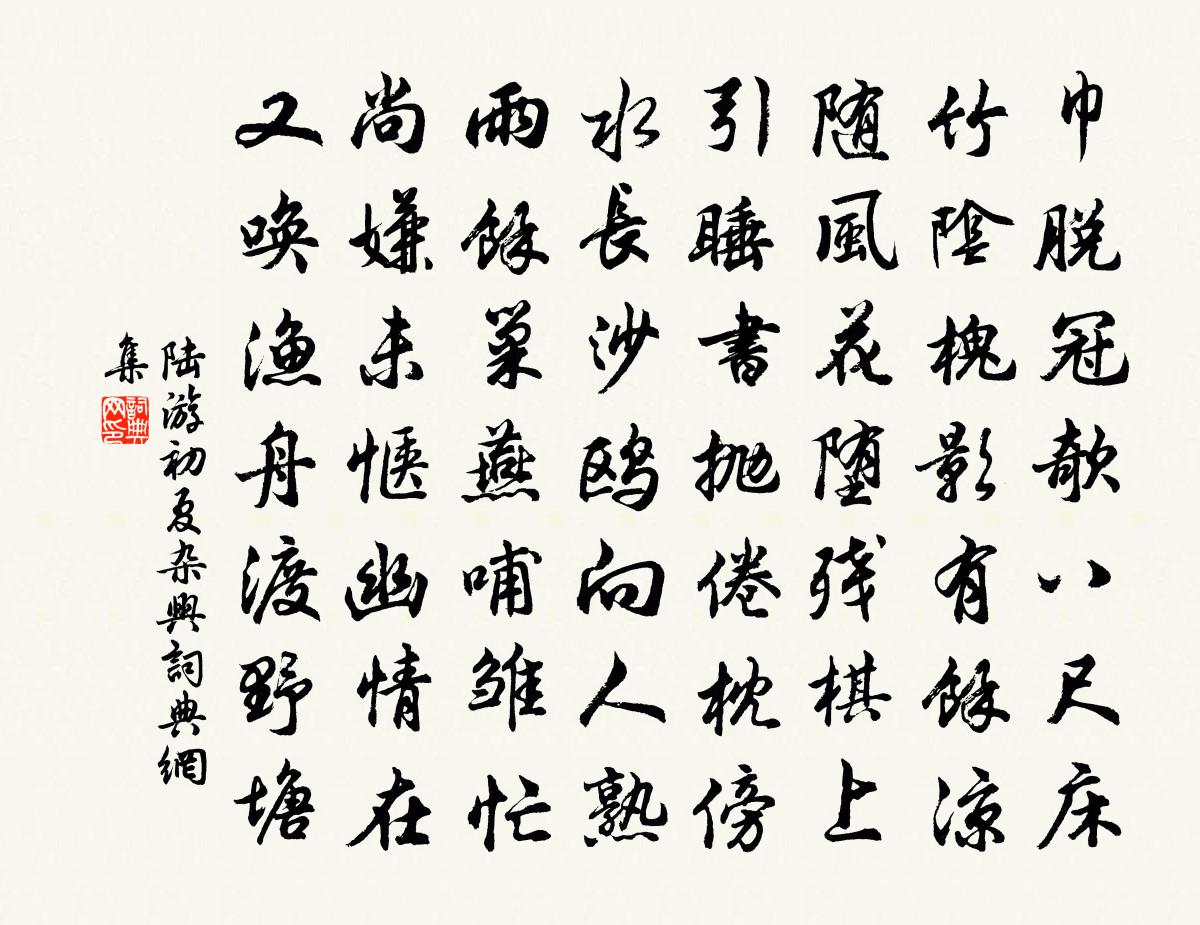 巾脱冠欹八尺床
竹陰槐影有餘涼
随風花堕残棋上
引睡書抛倦枕傍
水長沙鸥向人熟
雨餘巢燕哺雏忙
尚嫌未惬幽情在
又唤漁舟渡野塘
陆游初夏杂興詞典網
集
詞典
网印